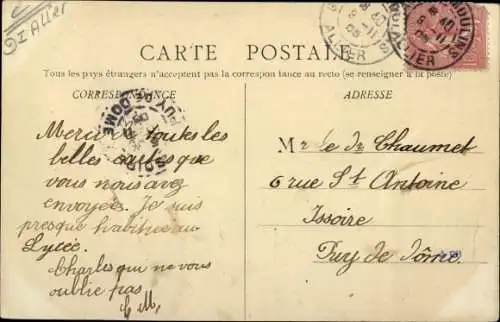 Dt Allier
MOULINS
ALLIER
MOULINS
ALLIER
CARTE POSTALE
Tous les pays étrangers n'acceptent pas la correspondance au recto (se renseigner à la poste)
CORRESPONDANCE
PUY DE DOME
ISSOIRE
Merci de toutes les
belles cartes que
vous nous avez
envoyées. Je suis
presque habituée au
Lycée.
Charles qui ne vous
oublie pas
ADRESSE
Mr le de Chaumet
6 rue St Antoine
Issoire
Puy de dôme.